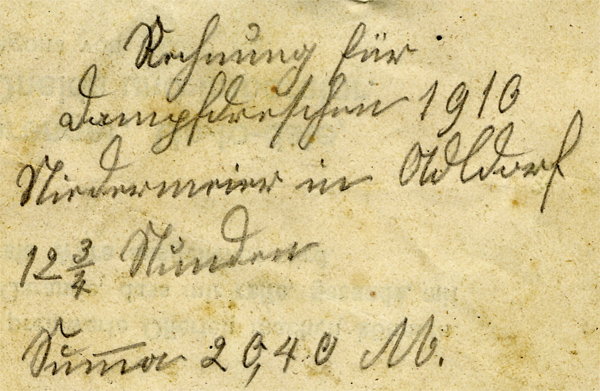 Rechnung für
Dampfdreschen 1910
Niedermeier in Adldorf
12 3/4 Stunden
Summa 20,40 M.